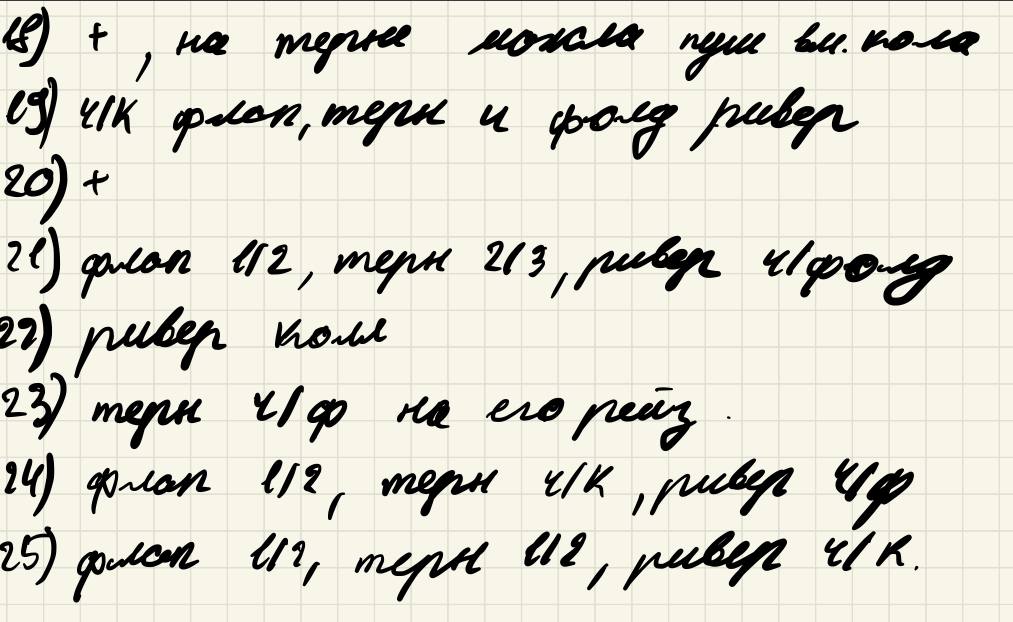 18) + , на терне можла пуш вм. кола
19) ч/к флоп, терн и фолд ривер
20) +
21) флоп 1/2, терн 2/3, ривер ч/фолд
22) ривер колл
23) терн ч/ф на его рейз.
24) флоп 1/2, терн ч/к, ривер ч/ф
25) флоп 1/2, терн 1/2, ривер ч/к.